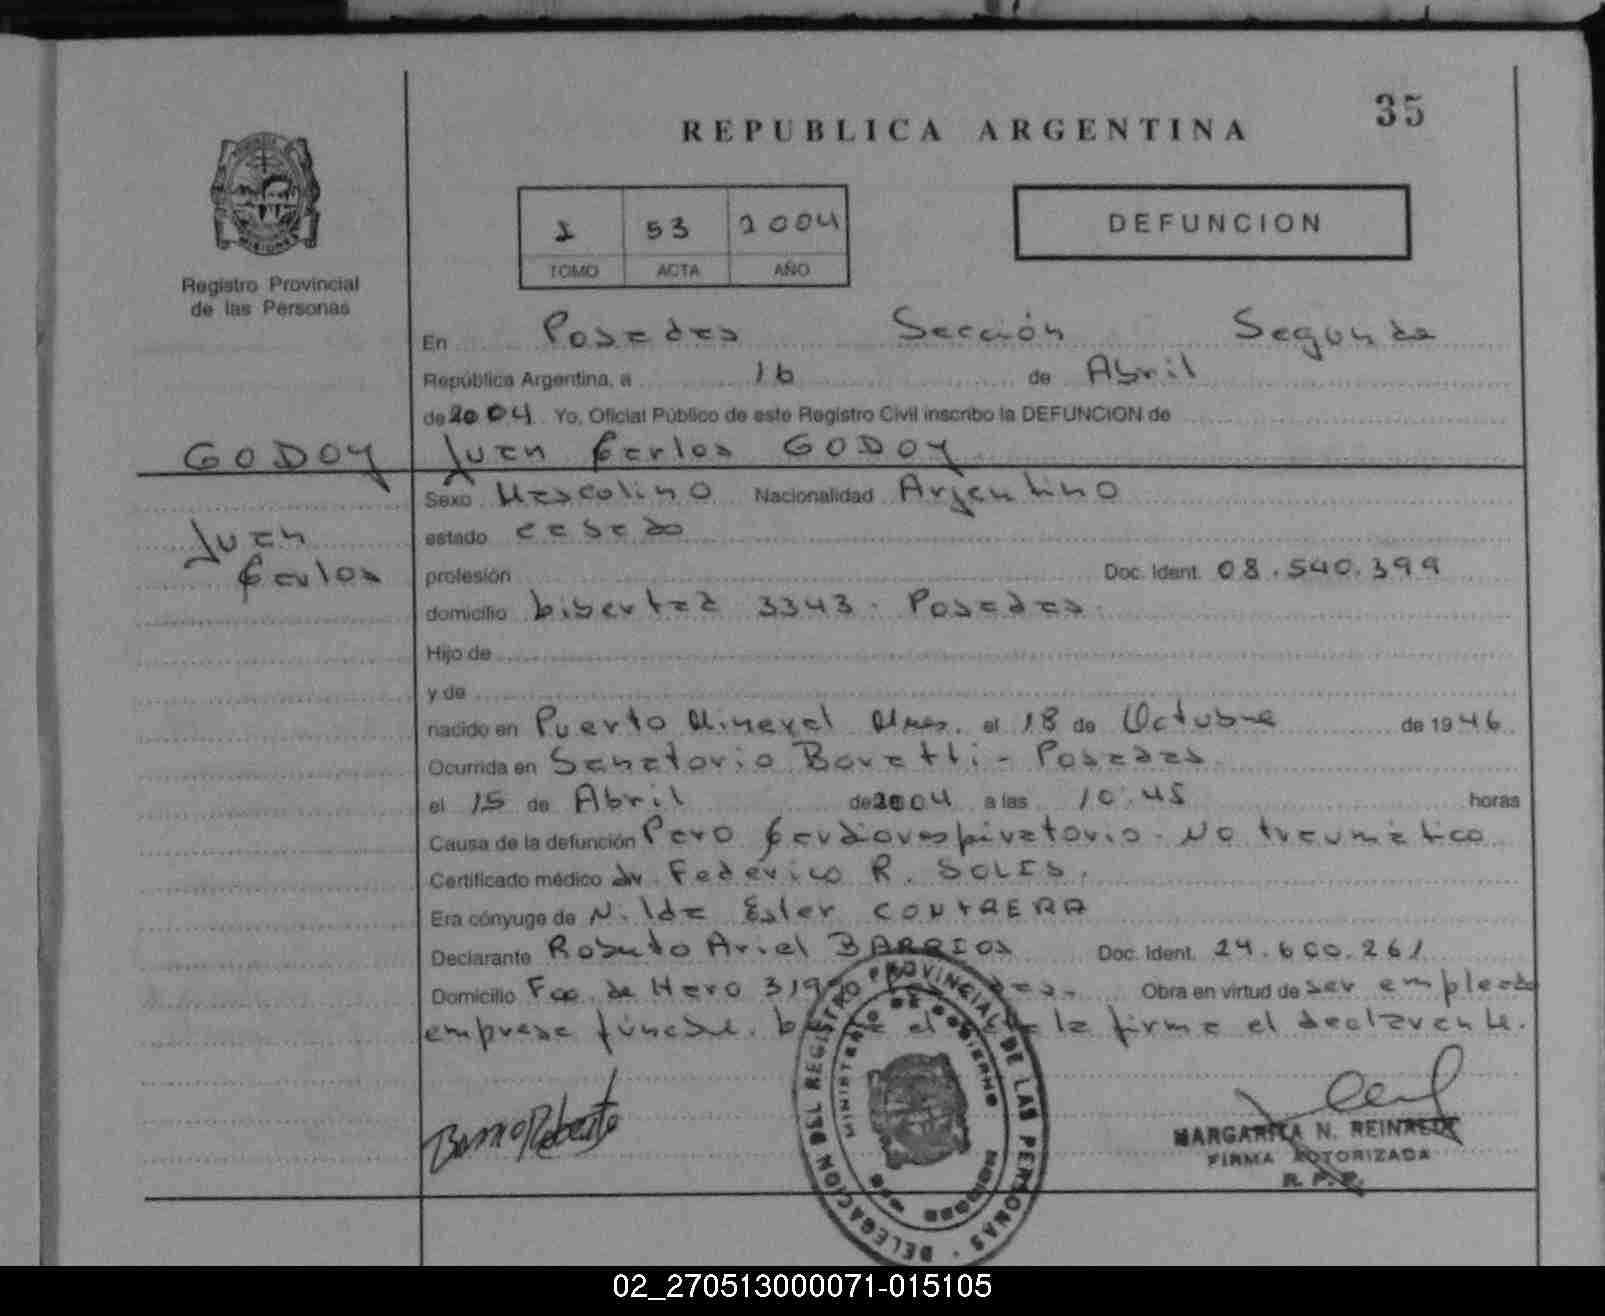 35
REPUBLICA ARGENTINA
DEFUNCION
I 53 2004
TOMO ACTA AÑO
MISIONES
Registro Provincial
de las Personas
En Posadas Sección Segunda
República Argentina, a 16 de Abril
de 2004 Yo, Oficial Público de este Registro Civil inscribo la DEFUNCION de
GODOY Juan Carlos GODOY
Sexo Masculino Nacionalidad Argentino
Juan estado casado
Carlos profesión Doc. Ident. 08.540.399
domicilio Libertad 3343. Posadas.
Hijo de
y de
nacido en Puerto Mineral Mnes. el 18 de Octubre de 1946
Ocurrida en Sanatorio Boratti - Posadas.
el 15 de Abril de 2004 a las 10:45 horas
Causa de la defunción Paro Cardiorespiratorio - No traumático
Certificado médico dr. Federico R. SOLIS.
Era cónyuge de Nilda Ester CONTRERA
Declarante Roberto Ariel BARRIOS Doc. Ident. 24.600.261
Domicilio Fco. de Haro Obra en virtud de ser empleado
empresa fúnebre. el la firma el declarante.
Barrio Roberto
DELEGACION DEL REGISTRO PROVINCIAL DE LAS PERSONAS
MINISTERIO DE GOBIERNO
MARGARITA N.
FIRMA AUTORIZADA
R. P. P.
02_270513000071-015105